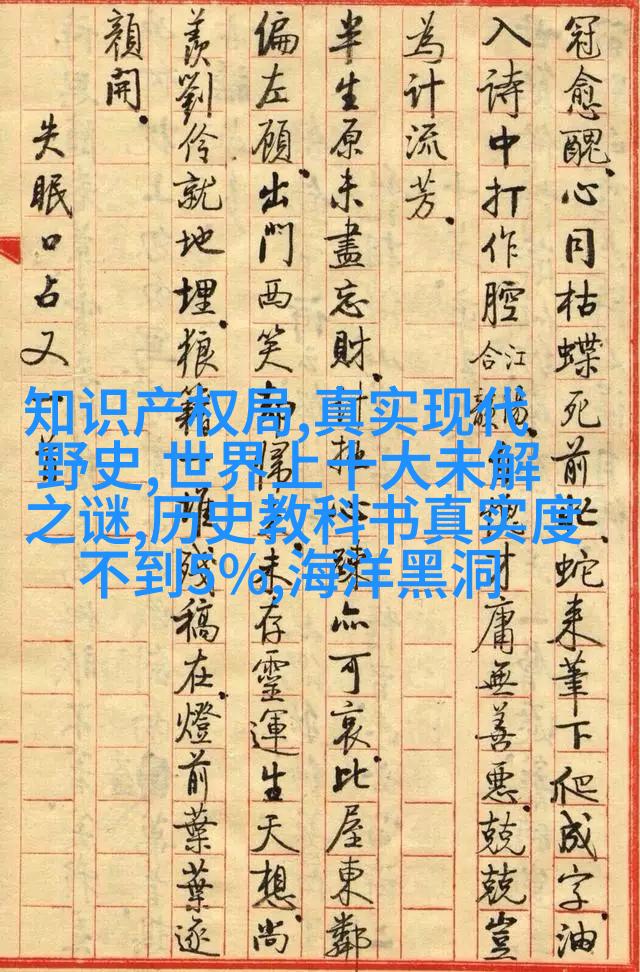 冠愈醜、心同枯蝶死前、蛇来筆下爬成字、油
入詩中打作腔、江合庸無善惡、兢兢豈
為計流芳、
半生原未盡忘財、心疎亦可哀、比屋東鄰
偏左顧、出門西笑歸未存靈運生天想、尚
羨劉伶就地埋、狼籍殘稿在、燈前葉葉逐
顏開、
失眠口占又
知识产权局,真实现代
野史,世界上十大未解
之谜,历史教科书真实度
不到5%,海洋黑洞